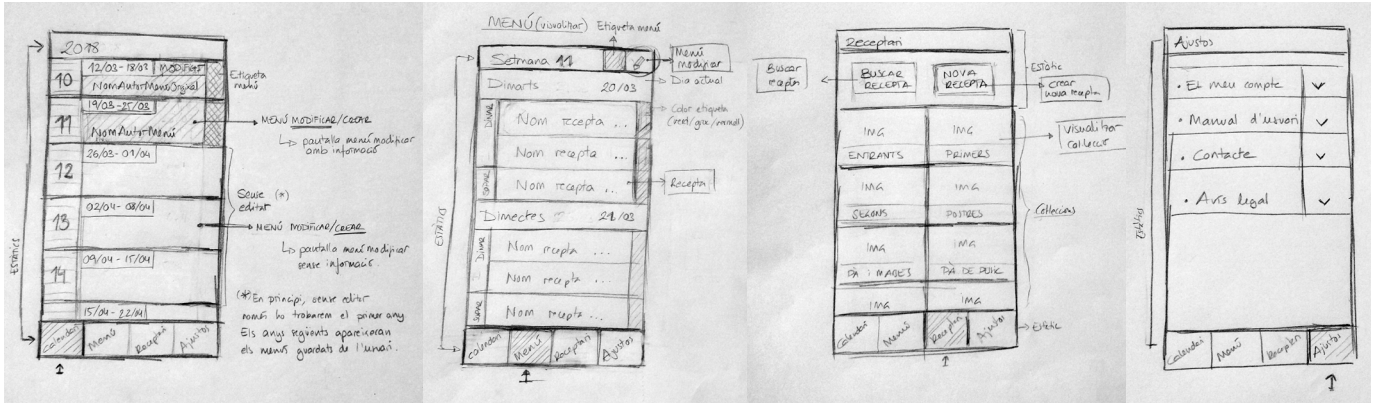 2018
10
12/03-18/03
MODIFICAT
NomAutorMenúOriginal
Etiqueta
menú
11
19/03-25/03
NomAutorMenú
MENÚ MODIFICAR/CREAR
pantalla menú modificar
amb informació
12
26/03-01/04
Sense (*)
editar
13
02/04-08/04
MENÚ MODIFICAR/CREAR
pantalla menú modificar
sense informació.
14
09/04-15/04
15/04-22/04
(*) En principi, sense editar
només ho trobarem el primer any
Els anys següents apareixeran
els menús guardats de l'usuari.
ESTÀTICS
Calendari
Menú
Receptari
Ajustos
MENÚ (visualitzar)
Etiqueta menú
Setmana 11
Menú
modificar
Dimarts
20/03
Dia actual
DINAR
Nom recepta ...
Nom recepta ...
Color etiqueta
SOPAR
Nom recepta ...
Recepta
Dimecres
21/03
DINAR
Nom recepta ...
Nom recepta ...
SOPAR
Nom recepta ...
ESTÀTICS
Calendari
Menú
Receptari
Ajustos
Receptari
Estàtic
Buscar
receptes
BUSCAR
RECEPTA
NOVA
RECEPTA
Crear
nova recepta
IMG
IMG
Visualitzar
col·lecció
ENTRANTS
PRIMERS
IMG
IMG
SEGONS
POSTRES
Col·leccions
IMG
IMG
PA I MASSES
IMG
IMG
Estàtic
Calendari
Menú
Receptari
Ajustos
Ajustos
• El meu compte
• Manual d'usuari
• Contacte
• Avís legal
Estàtic
Calendari
Menú
Receptari
Ajustos